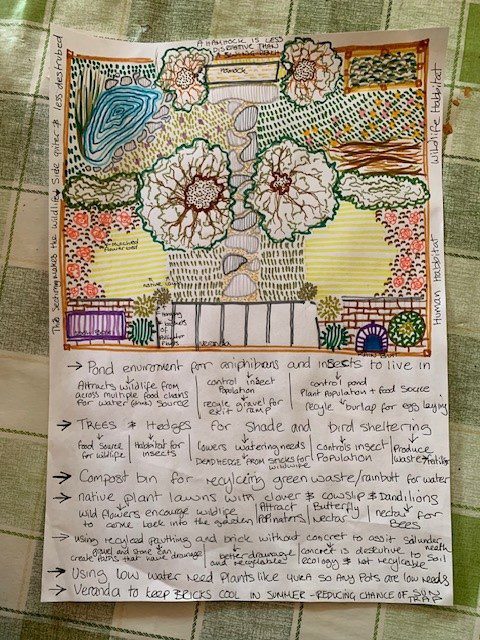 A HAMMOCK IS LESS
THAN
HAMOCK
This Section makes the wildlife Side quiter & less destrubed
Wildlife Habbitat
Human Habbitat
Mulched
flower bed
native
hanging
baskets
of
Pollinator
Plants
VERANDA
→ Pond enviroment for amphibians and insects to live in
Attracts wildlife from
across multiple food chains
for water source
control insect
Population
recycle gravel for
exit ramp
control pond
Plant Population + food source
recyle burlap for egg laying
→ TREES & Hedges for Shade and bird sheltering
food source
for wildlife
Habitat for
insects
lowers watering needs
DEADHEDGE FROM STICKS FOR
Controls insect
Population
Produce
waste
→ Compost bin for recylceing green waste/rainbutt for water
→ native plant lawns with clover & cowslip & Dandilions
wild flowers encourage wildlife
to come back into the garden
Attract
Pollinators
Butterfly
Nectar
nectar for
Bees
→ using recyled and brick without concrete to assit soil under neath
gravel and stone can
create PATHS that have drainage
better drainage
and recyclable
concrete is destutive to soil
ecology & not recylcable
→ Using low water need Plants like yuka so any Pots are low needs
→ Veranda to keep BRICKS COOL IN SUMMER - REDUCING CHANCE OF SUN
TRAP